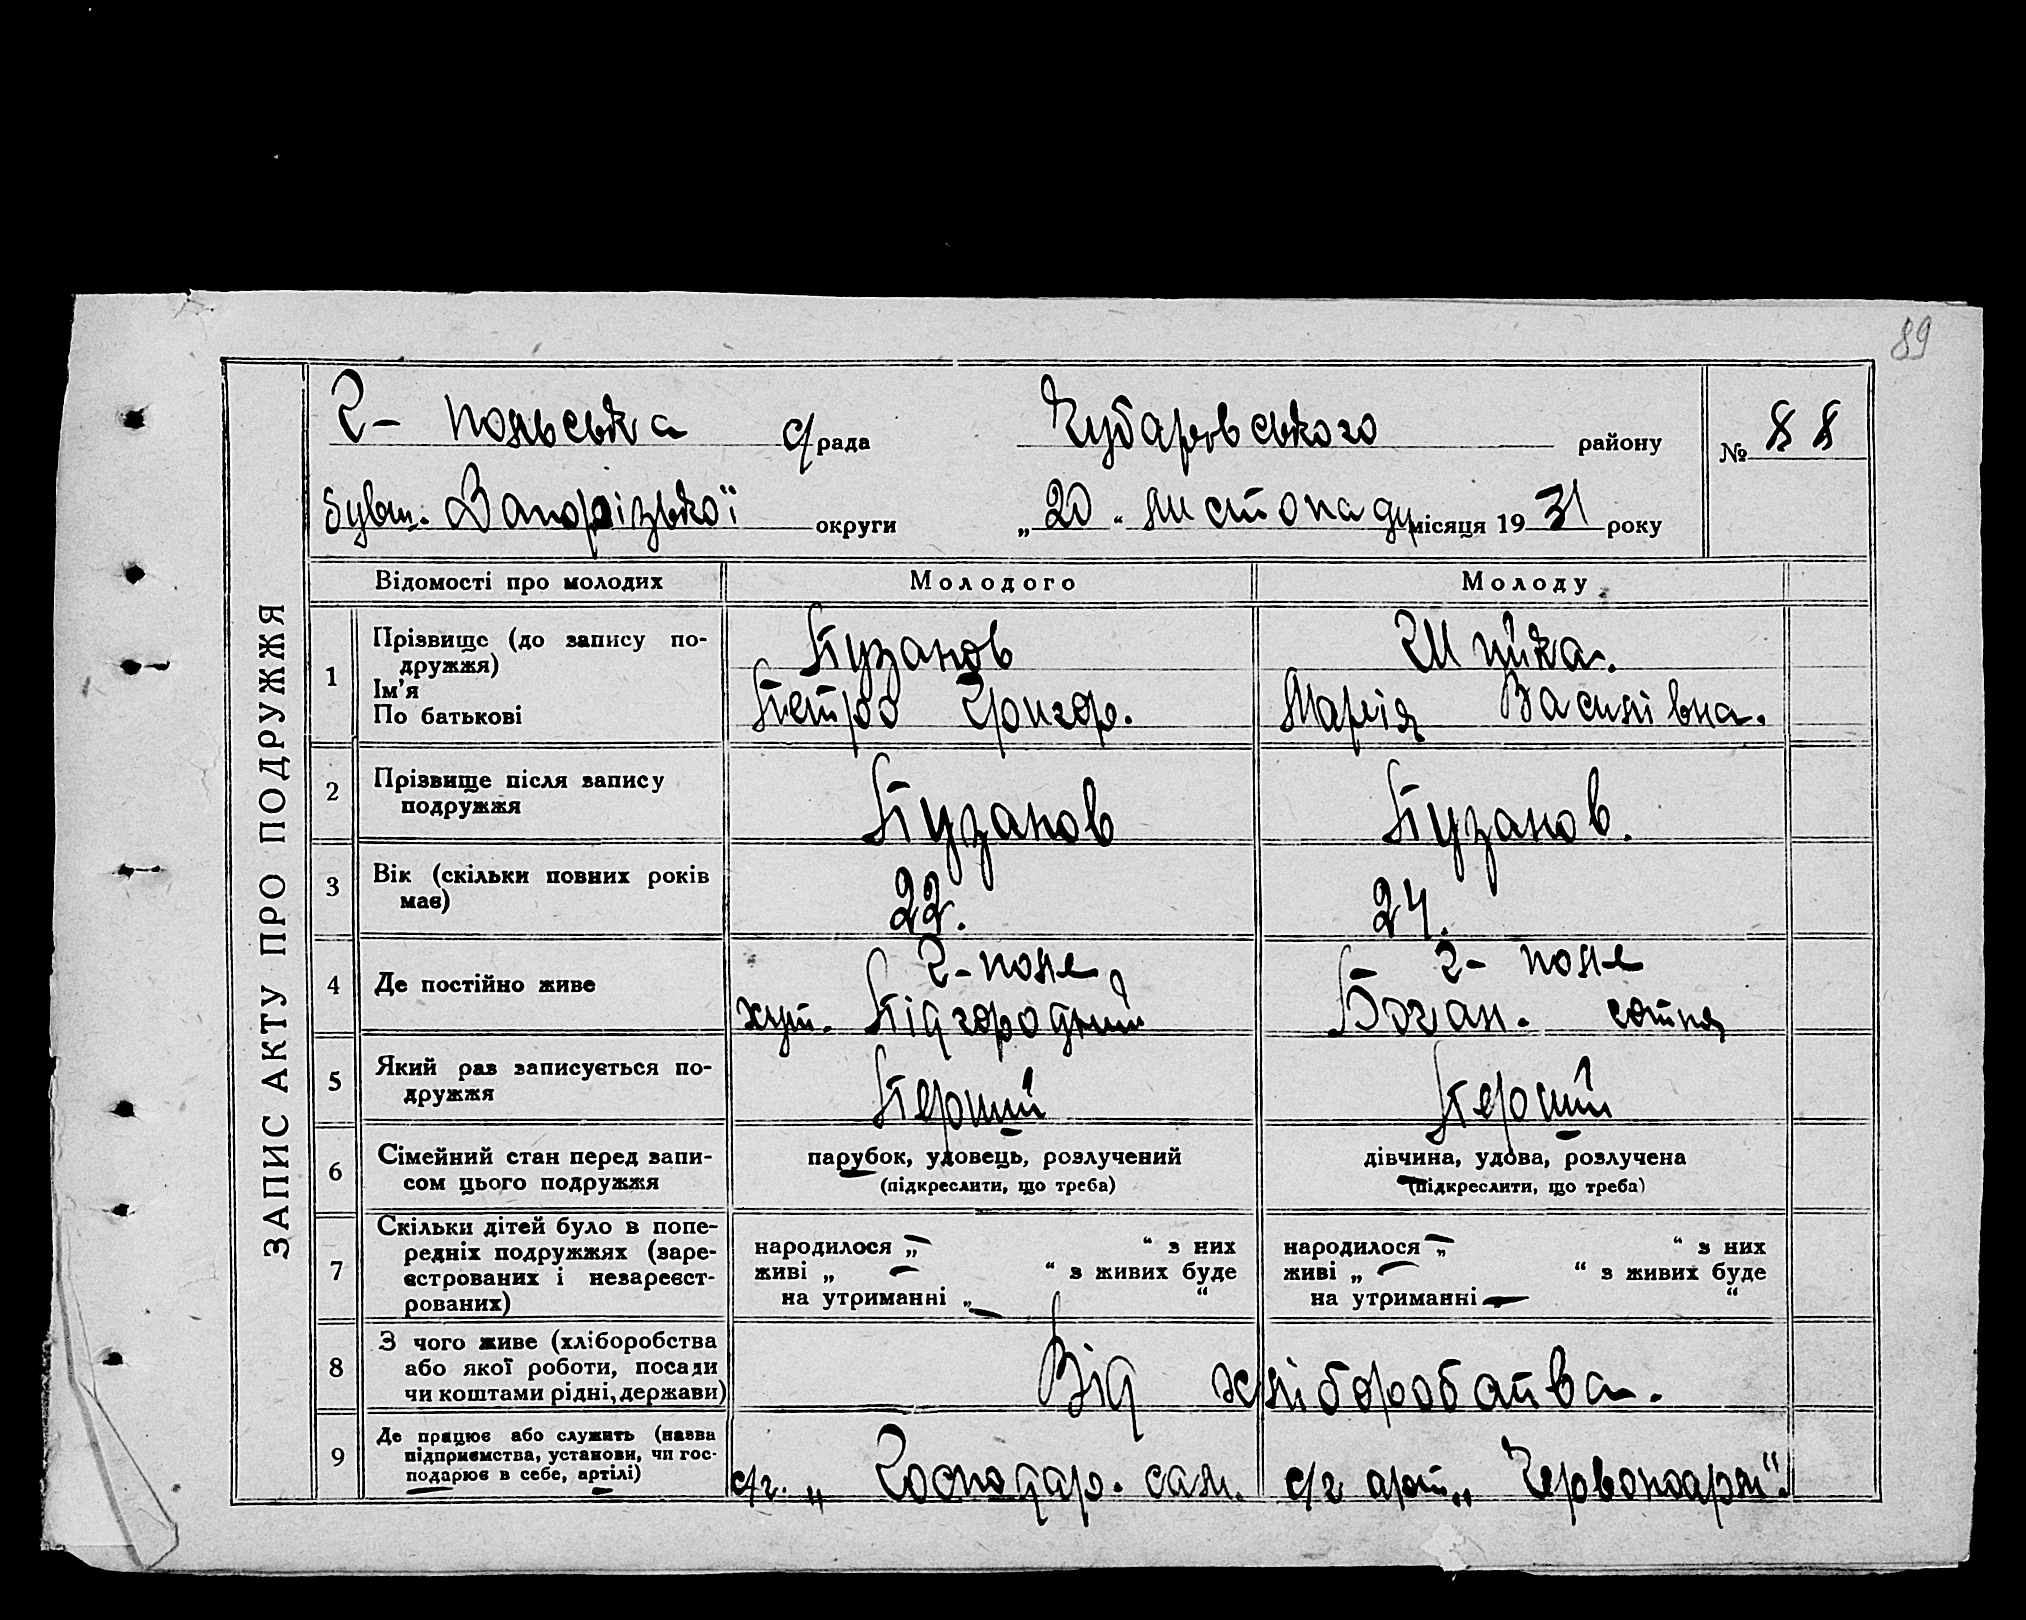 89
ЗАПИС АКТУ ПРО ПОДРУЖЖЯ
2- польська с/рада Чубаровського району № 88
бувш. Запорізької округи „20“ листопаду місяця 1931 року
Відомості про молодих Молодого Молоду
1 Прізвище (до запису по-
дружжя) Пузанов
Ім'я
По батькові Петро Григор. Марія Василівна.
2 Прізвище після запису
подружжя Пузанов Пузанов.
3 Вік (скільки повних років
має) 22. 24.
4 Де постійно живе 2-поле 2- поле
хут. Підгородний Богдан. сотня
5 Який раз записується по-
дружжя Перший Перший
6 Сімейний стан перед запи-
сом цього подружжя
парубок, удовець, розлучений
(підкреслити, що треба)
дівчина, удова, розлучена
(підкреслити, що треба)
7 Скільки дітей було в попе-
редніх подружжях (заре-
єстрованих і незареєст-
рованих)
народилося „ — “ з них
живі „ — “ з живих буде
на утриманні „ — “
народилося „ — “ з них
живі „ — “ з живих буде
на утриманні — “
8 З чого живе (хліборобства
або якої роботи, посади
чи коштами рідні, держави)
Від хліборобства.
9 Де працює або служить (назва
підприємства, установи, чи гос-
подарює в себе, артілі)
с/г. „ Господар. сам. с/г арт. „Червоноарм“.